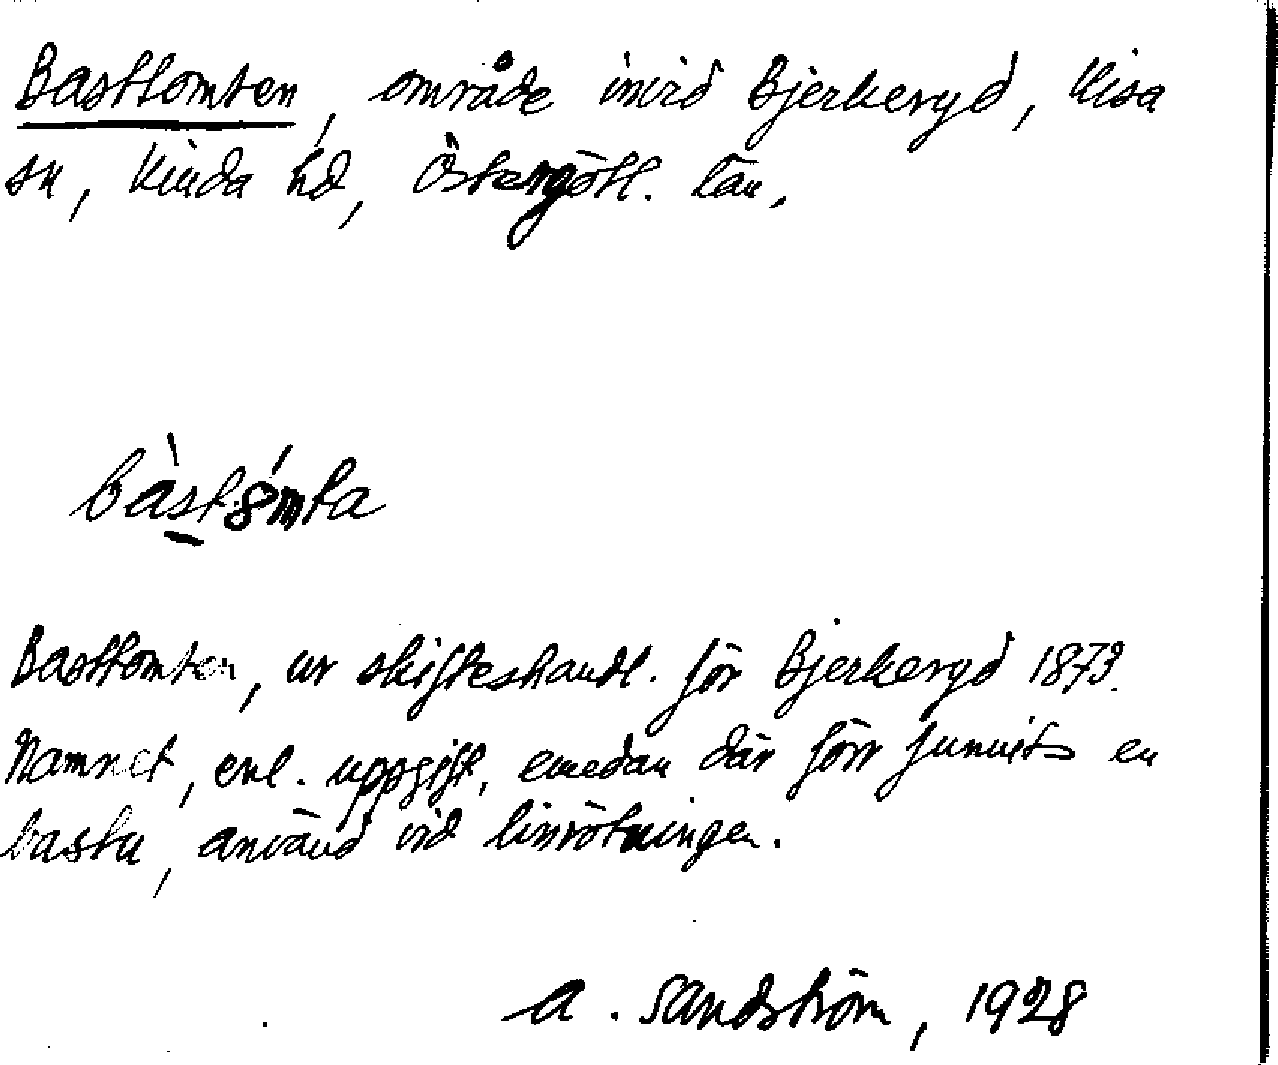 Basttomten, område invid Bjerkeryd, Kisa
sn, Kinda hd, Östergötl. län.
bàstómta
Basttomten, ur skifteshandl. för Bjerkeryd 1873.
Namnet, enl. uppgift, emedan där förr funnits en
bastu, använd vid linrötningen.
A. Sandström, 1928